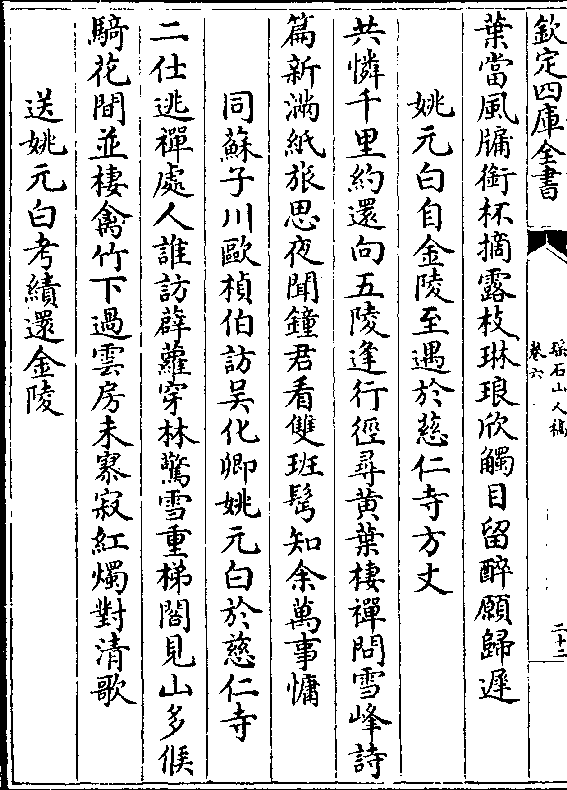 欽定四庫全書
瑤石山人稿
卷六
二十二
葉當風牖銜杯摘露枝琳琅欣觸目留醉願歸遲
姚元白自金陵至遇於慈仁寺方丈
共憐千里約還向五陵逢行徑尋黃葉棲禪問雪峰詩
篇新滿紙旅思夜聞鐘君看雙班髩知余萬事慵
同蘇子川歐楨伯訪吳化卿姚元白於慈仁寺
二仕逃禪處人誰訪薜蘿穿林驚雪重梯閣見山多候
騎花間並棲禽竹下過雲房未寥寂紅燭對清歌
送姚元白考績還金陵